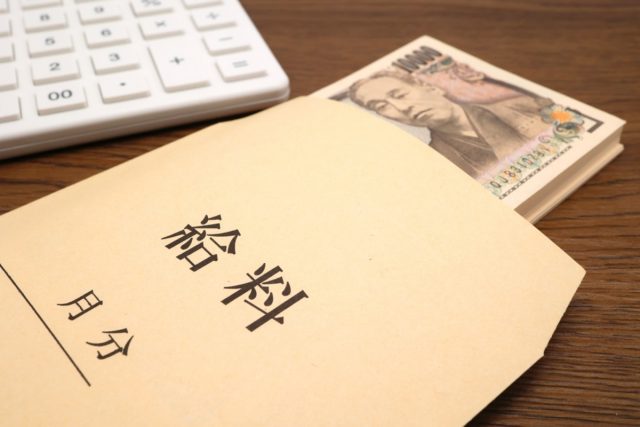 8 9
5 6 ×
2 3 +
00 · =
10000
給料
月分